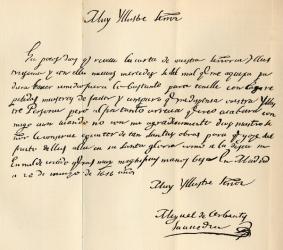 Muy Yllustre Señor
Ha pocos dias q recevi la carta de vuestra Señoria Yllus
trissima y con ella nuevas mercedes si del mal q me aquexa pu
diera haver remedio fuera lo bastante para tenelle con
muestras de favor y amparo q me dispensa vuestra Yllus
tre Persona pero al fin tanto arrecia q creo acabara con
migo aun cuando no con mi agradecimiento Dios nuestro Se
ñor le conserve egecutor de tan santas obras para q goze del
fruto dellas alla en su santa gloria como se la desea su
humilde criado q sus muy magnificas manos besa en Madrid
a 26 de marzo de 1616 años
Muy Yllustre Señor
Miguel de Cerbantes
Saauedra